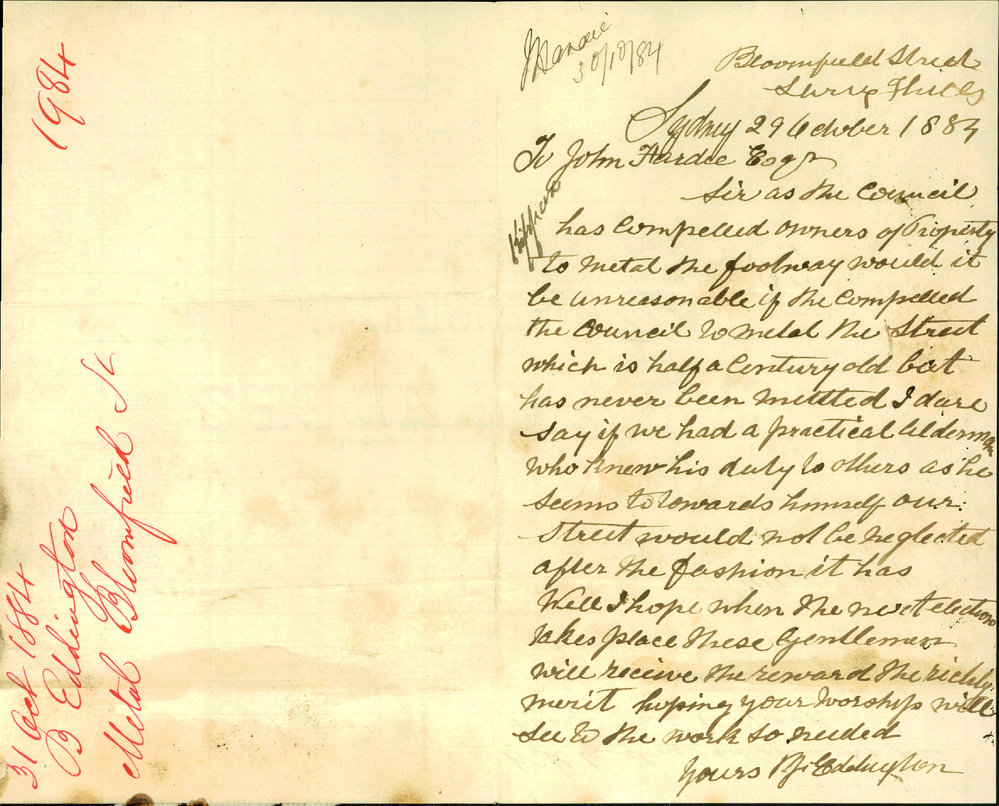 1984
31 Oct 1884
B Eddington
Metal Bloomfield St
J Hardie
30/10/84
Bloomfield Street
Surry Hills
Sydney 29 October 1884
To John Hardee Esqr
Sir as the Council
has Compelled owners of Property
to metal the footway would it
be unreasonable if the Compelled
the Council to metal the Street
which is half a Century old bat
has never been mettled I dare
say if we had a practical Alderman
who knew his duty to others as he
seems to towards himself our
Street would not be neglected
after the fashion it has
Well I hope when the next election
takes place these Gentlemen
will receive the reward the richly
merit hoping your Worship will
see to the work so needed
Yours B Eddington